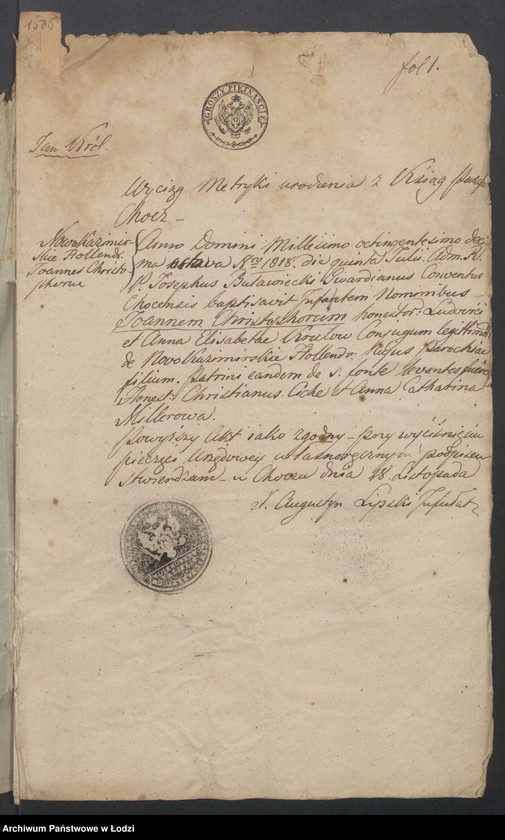 1586
fol 1.
GROSZY PIĘTNAŚCIE
Jan Król.
Wyciąg Metryki urodzenia z Xsiąg Paraf:
Chocz –
NovoKazimir
skie Hollendr.
Joannes Christo
phorus
Anno Domini Millesimo octingentesimo deci
ma octava Nro 1818. die quinta Julii. Adm. R.
P. Josephus Gwardianus Conventus
Choczensis baptisavit Infantem Nominibus
Joannem Christophorum honestor: Ludovici
et Anna Elisabethe Krulow Conjugum legitimor
de NovoKazimirskie Hollendr. hujus parochiae
filium. Patrini eundem de S. fonte levantes fuere
Honest: Christianus et Anna Catharina
Millerowa.
Powyższy Akt iako zgodny – przy wyciśnięciu
pieczęci Urzędowey własnoręcznym podpisem
stwierdzam – w Choczu dnia 18. Listopada
X. Augustyn Lipski Infułat
Archiwum Państwowe w Łodzi